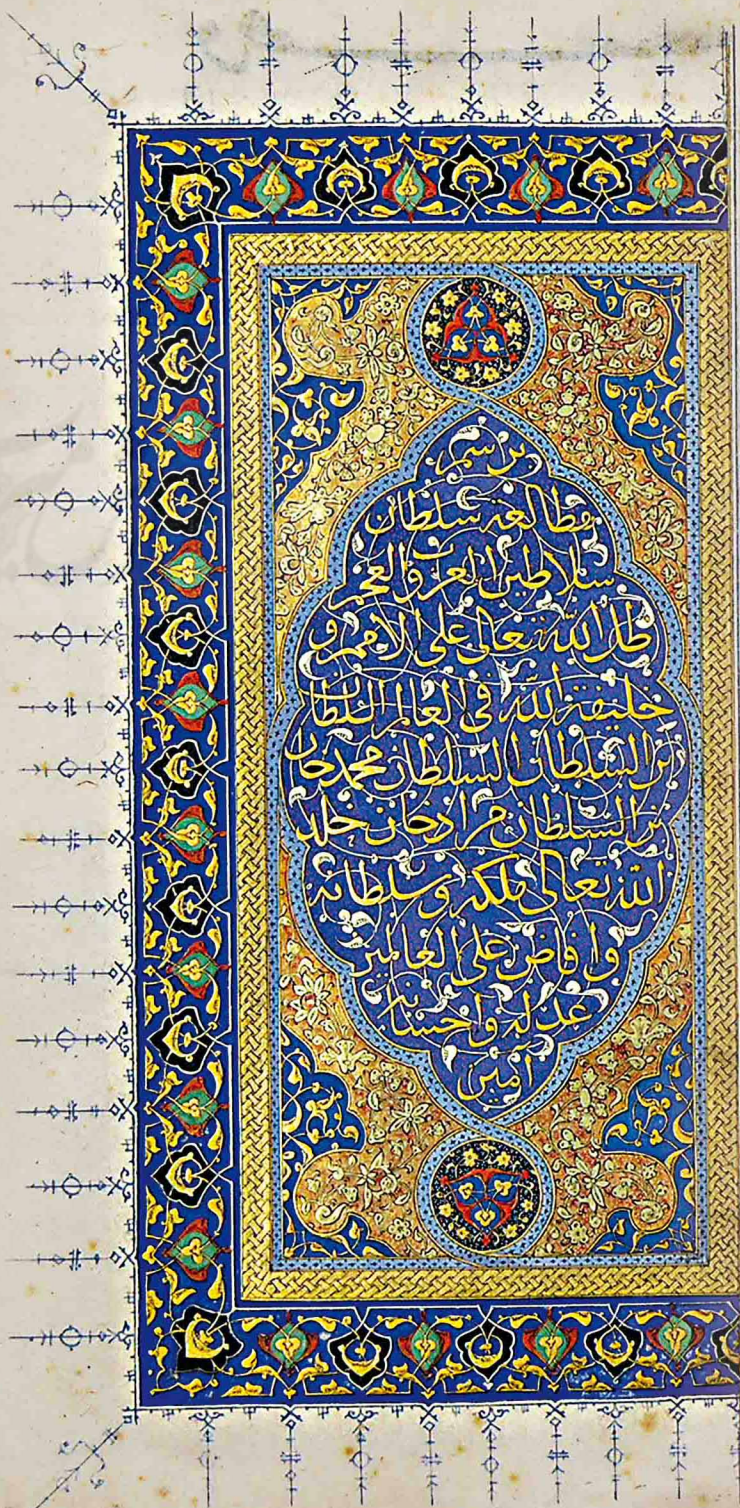 برسم
مطالعة سلطان
سلاطين العرب والعجم
ظل الله تعالى على الأمم و
خليفة الله في العالم السلطان
بن السلطان السلطان محمد خان
بن السلطان مراد خان خلد
الله تعالى ملكه وسلطانه
وافاض على العالمين
عدله واحسانه
آمين